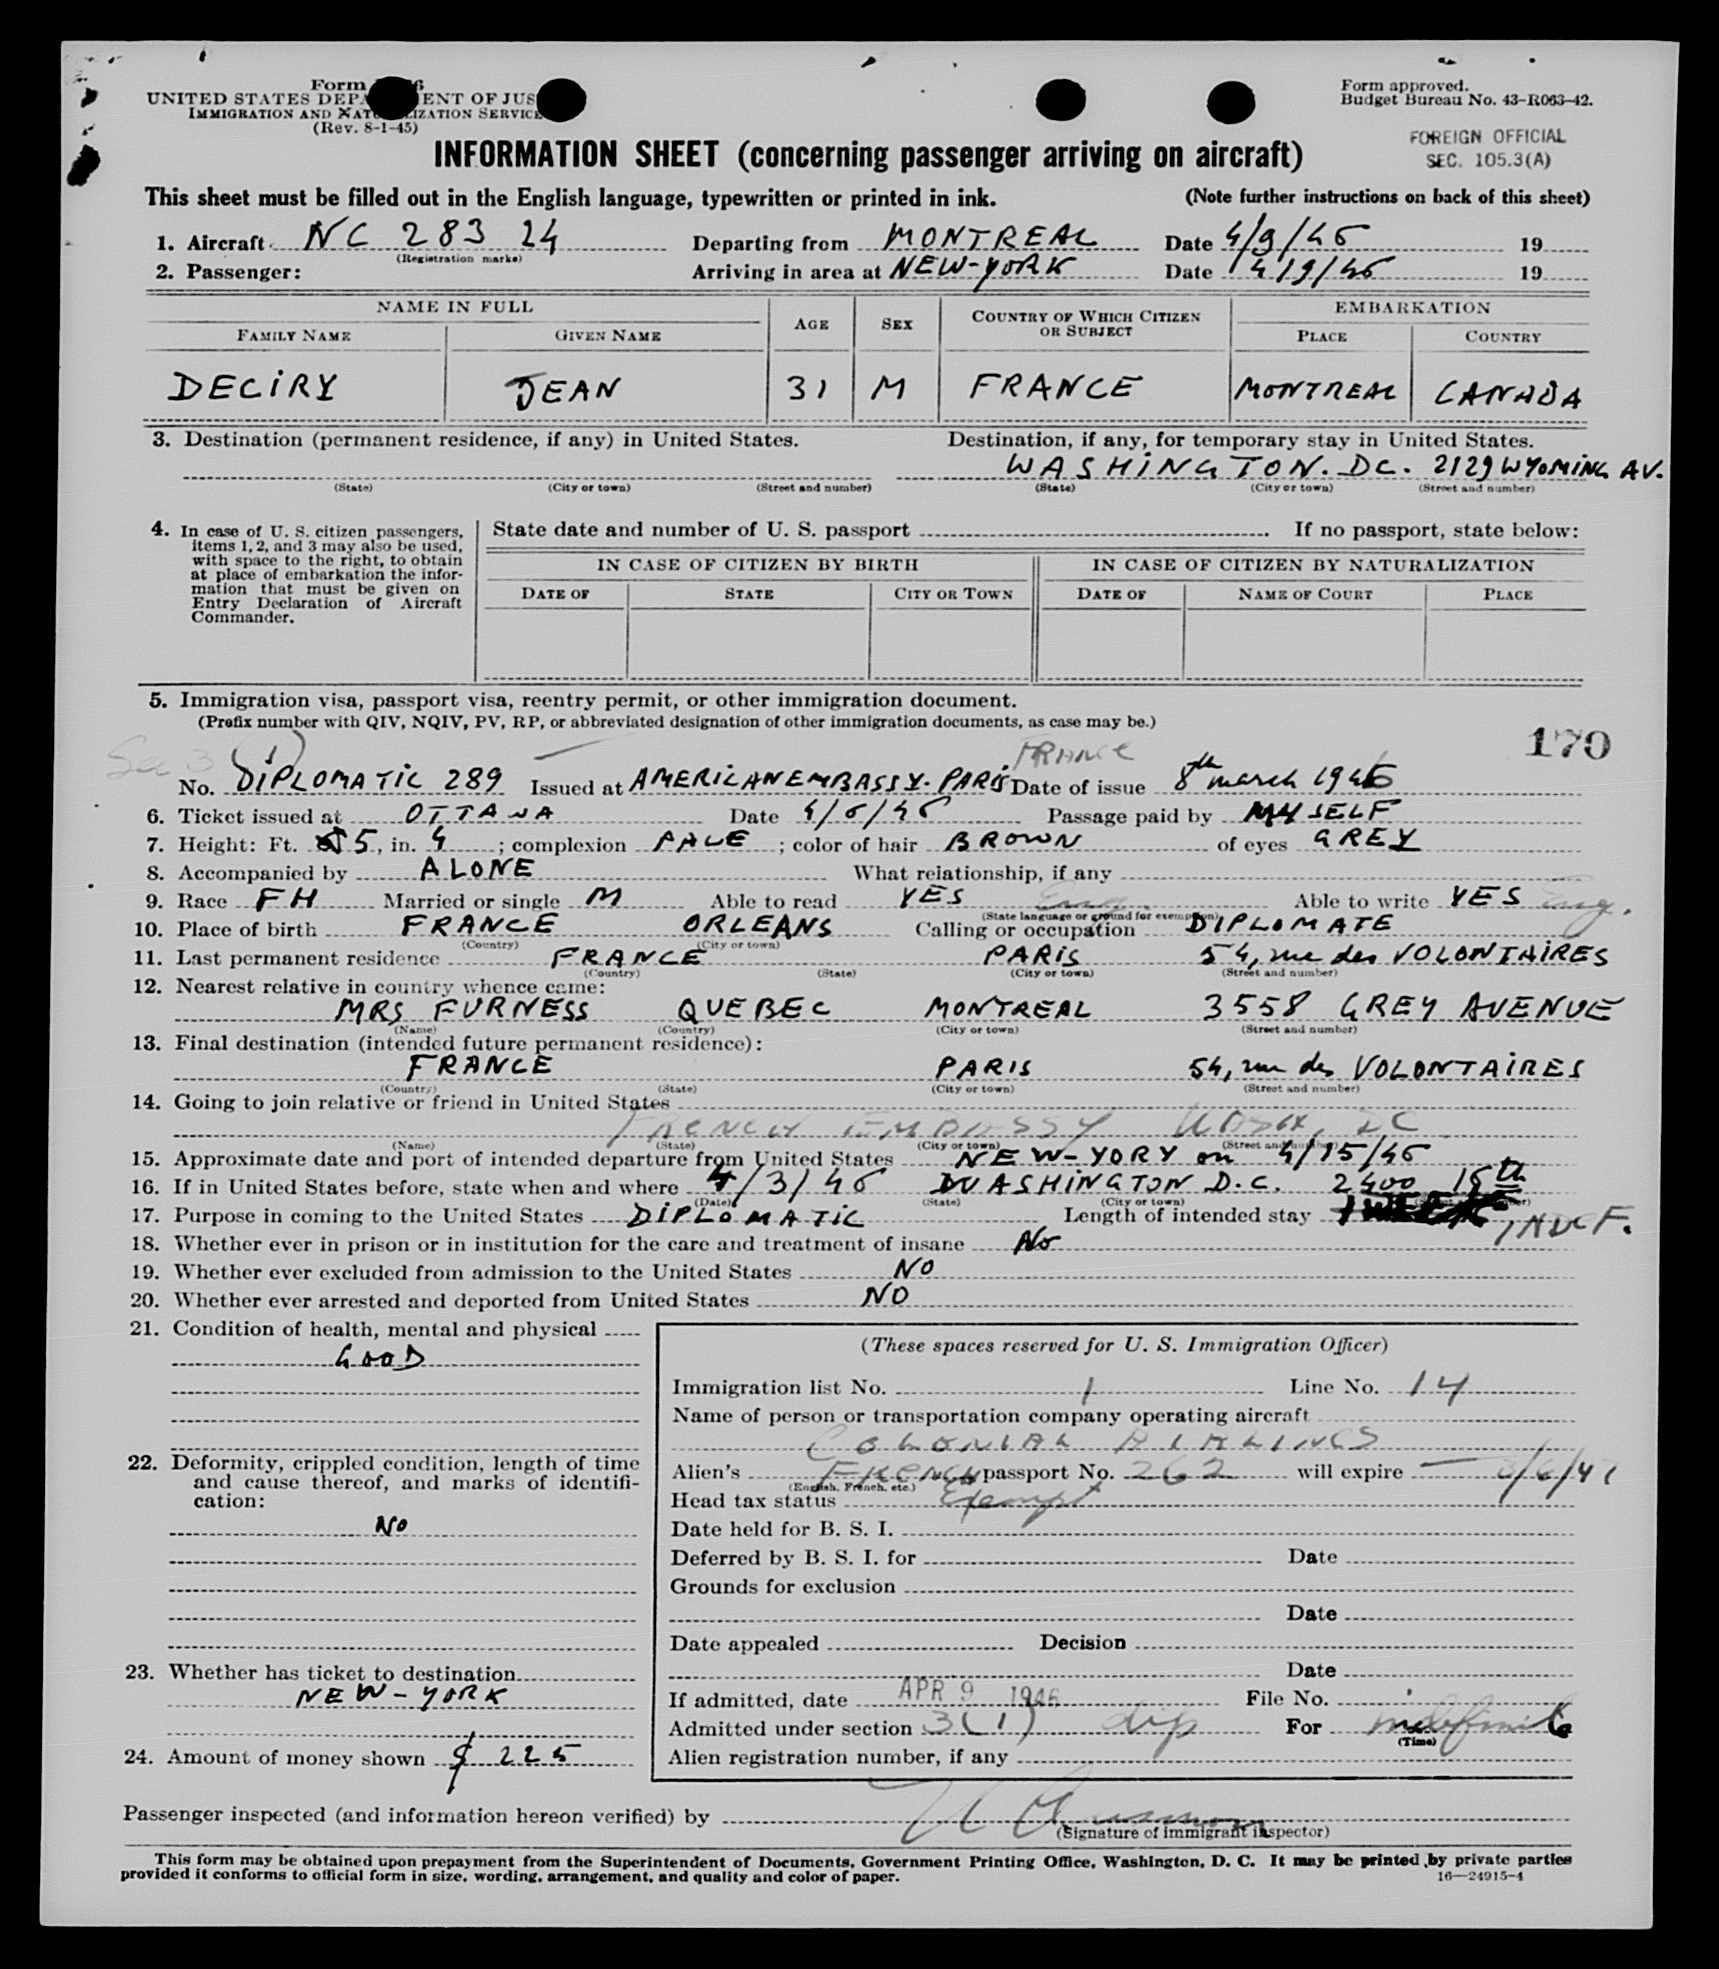 UNITED STATES DEPARTMENT OF JUS
IMMIGRATION AND NATURALIZATION SERVICE
(Rev. 8-1-45)
Form approved.
Budget Bureau No. 43-R063-42.
FOREIGN OFFICIAL
SEC. 105.3(A)
INFORMATION SHEET (concerning passenger arriving on aircraft)
This sheet must be filled out in the English language, typewritten or printed in ink. (Note further instructions on back of this sheet)
1. Aircraft NC 283 24 Departing from MONTREAL Date 4/9/46 19
(Registration marks)
2. Passenger: Arriving in area at NEW-YORK Date 4/9/46 19
NAME IN FULL AGE SEX COUNTRY OF WHICH CITIZEN OR SUBJECT EMBARKATION
FAMILY NAME GIVEN NAME PLACE COUNTRY
DECIRY JEAN 31 M FRANCE MONTREAL CANADA
3. Destination (permanent residence, if any) in United States. Destination, if any, for temporary stay in United States.
WASHINGTON. DC. 2129 WYOMING AV.
(State) (City or town) (Street and number) (State) (City or town) (Street and number)
4. In case of U. S. citizen passengers,
items 1, 2, and 3 may also be used,
with space to the right, to obtain
at place of embarkation the infor-
mation that must be given on
Entry Declaration of Aircraft
Commander.
State date and number of U. S. passport If no passport, state below:
IN CASE OF CITIZEN BY BIRTH IN CASE OF CITIZEN BY NATURALIZATION
DATE OF STATE CITY OR TOWN DATE OF NAME OF COURT PLACE
5. Immigration visa, passport visa, reentry permit, or other immigration document.
(Prefix number with QIV, NQIV, PV, RP, or abbreviated designation of other immigration documents, as case may be.)
170
Sec 3 (1) FRANCE
No. DIPLOMATIC 289 Issued at AMERICAN EMBASSY. PARIS Date of issue 8th march 1946
6. Ticket issued at OTTAWA Date 4/6/46 Passage paid by MYSELF
7. Height: Ft. 5, in. 4; complexion PALE; color of hair BROWN of eyes GREY
8. Accompanied by ALONE What relationship, if any
9. Race FH Married or single M Able to read YES Eng. Able to write YES Eng.
(State language or ground for exemption)
10. Place of birth FRANCE ORLEANS Calling or occupation DIPLOMATE
(Country) (City or town)
11. Last permanent residence FRANCE PARIS 54, rue des VOLONTAIRES
(Country) (State) (City or town) (Street and number)
12. Nearest relative in country whence came:
MRS FURNESS QUEBEC MONTREAL 3558 GREY AVENUE
(Name) (Country) (City or town) (Street and number)
13. Final destination (intended future permanent residence):
FRANCE PARIS 54, rue des VOLONTAIRES
(Country) (State) (City or town) (Street and number)
14. Going to join relative or friend in United States
FRENCH EMBASSY WASH, DC
(Name) (State) (City or town) (Street and number)
15. Approximate date and port of intended departure from United States NEW-YORY on 4/15/46
16. If in United States before, state when and where 4/3/46 WASHINGTON D.C. 2400 16th
(Date) (State) (City or town)
17. Purpose in coming to the United States DIPLOMATIC Length of intended stay 1 WEEK INDEF.
18. Whether ever in prison or in institution for the care and treatment of insane No
19. Whether ever excluded from admission to the United States NO
20. Whether ever arrested and deported from United States NO
21. Condition of health, mental and physical
GOOD
22. Deformity, crippled condition, length of time
and cause thereof, and marks of identifi-
cation:
No
23. Whether has ticket to destination
NEW-YORK
24. Amount of money shown $ 225
(These spaces reserved for U. S. Immigration Officer)
Immigration list No. 1 Line No. 14
Name of person or transportation company operating aircraft
COLONIAL AIRLINES
Alien's FRENCH passport No. 262 will expire 3/6/47
(English, French, etc.)
Head tax status Exempt
Date held for B. S. I.
Deferred by B. S. I. for Date
Grounds for exclusion
Date
Date appealed Decision
Date
If admitted, date APR 9 1946 File No.
Admitted under section 3(1) dip For indefinite
(Time)
Alien registration number, if any
Passenger inspected (and information hereon verified) by
(Signature of immigrant inspector)
This form may be obtained upon prepayment from the Superintendent of Documents, Government Printing Office, Washington, D. C. It may be printed by private parties
provided it conforms to official form in size, wording, arrangement, and quality and color of paper. 16—24915-4